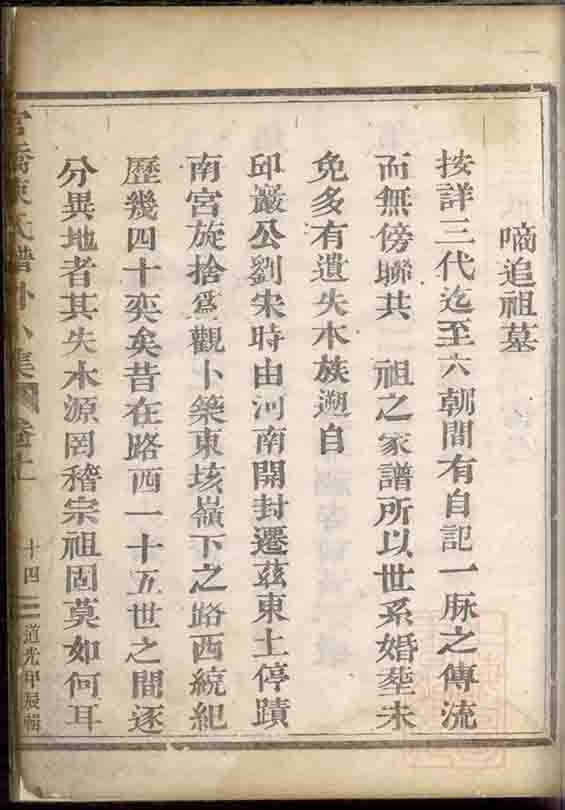 啇追祖墓
按詳三代迄至六朝間有自記一脉之傳流
而無傍聯共一祖之家譜所以世系婚塟未
免多有遺失本族遡自
印巖公劉宋時由河南開封遷兹東土停蹟
南宮旋捨爲觀卜築東垓嶺下之路西統紀
歷幾四十奕矣昔在路西一十五世之間逐
分異地者其失木源罔稽宗祖固莫如何耳
橋陳氏譜外小集 卷十一 十四 道光甲辰輯